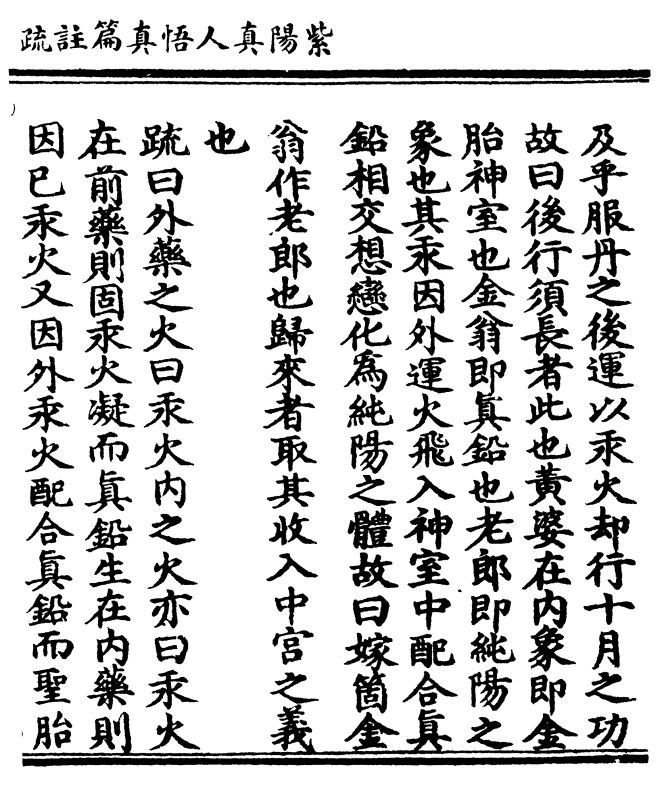 紫陽真人悟真篇註疏
及乎服丹之後運以汞火却行十月之功
故曰後行須長者此也黄婆在内象即金
胎神室也金翁即真鉛也老郎即純陽之
象也其汞因外運火飛入神室中配合真
鉛相交想戀化為純陽之體故曰嫁箇金
翁作老郎也歸來者取其收入中宮之義
也
疏曰外藥之火曰汞火内之火亦曰汞火
在前藥則固汞火凝而真鉛生在内藥則
因巳汞火又因外汞火配合真鉛而聖胎